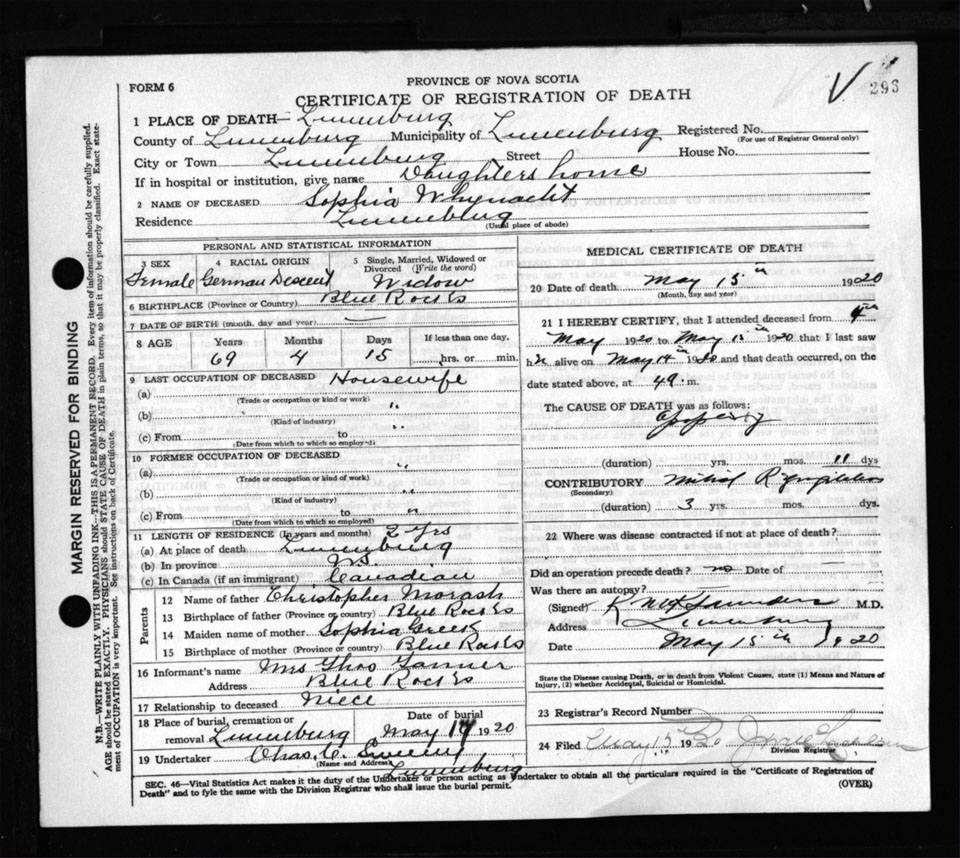 FORM 6
PROVINCE OF NOVA SCOTIA
CERTIFICATE OF REGISTRATION OF DEATH
V 293
1 PLACE OF DEATH— Lunenburg
County of Lunenburg Municipality of Lunenburg Registered No.
(For use of Registrar General only)
City or Town Lunenburg Street House No.
If in hospital or institution, give name Daughters home
2 NAME OF DECEASED Sophia Whynacht
Residence Lunenburg
(Usual place of abode)
PERSONAL AND STATISTICAL INFORMATION
3 SEX 4 RACIAL ORIGIN 5 Single, Married, Widowed or Divorced (Write the word)
Female German Descent Widow
6 BIRTHPLACE (Province or Country) Blue Rocks
7 DATE OF BIRTH (month, day and year) —
8 AGE Years Months Days If less than one day,
69 4 15 hrs. or min.
9 LAST OCCUPATION OF DECEASED Housewife
(a)
(Trade or occupation or kind of work)
(b) "
(Kind of industry)
(c) From to "
(Date from which to which so employed)
10 FORMER OCCUPATION OF DECEASED
(a) "
(Trade or occupation or kind of work)
(b) "
(Kind of industry)
(c) From to "
(Date from which to which so employed)
11 LENGTH OF RESIDENCE (In years and months) 2 Yrs
(a) At place of death Lunenburg
(b) In province
(c) In Canada (if an immigrant) Canadian
Parents
12 Name of father Christopher Morash
13 Birthplace of father (Province or country) Blue Rocks
14 Maiden name of mother Sophia Greek
15 Birthplace of mother (Province or country) Blue Rocks
16 Informant's name Mrs Thos Tanner
Address Blue Rocks
17 Relationship to deceased niece
18 Place of burial, cremation or removal Lunenburg Date of burial May 17 1920
19 Undertaker Chas. C. Sweeny
(Name and Address) Lunenburg
MEDICAL CERTIFICATE OF DEATH
20 Date of death May 15th 1920
(Month, day and year)
21 I HEREBY CERTIFY, that I attended deceased from 4th
May 1920 to May 15th 1920 that I last saw
h alive on May 14th 1920 and that death occurred, on the
date stated above, at 4 m.
The CAUSE OF DEATH was as follows:
Apoplexy
(duration) yrs. mos. 11 dys
CONTRIBUTORY Mitral Regurgitation
(Secondary)
(duration) 3 yrs. mos. dys.
22 Where was disease contracted if not at place of death?
Did an operation precede death? no Date of
Was there an autopsy?
(Signed) Saunders M.D.
Address Lunenburg
Date May 15th 1920
State the Disease causing Death, or in death from Violent Causes, state (1) Means and Nature of Injury, (2) whether Accidental, Suicidal or Homicidal.
23 Registrar's Record Number
24 Filed May 15 1920
Division Registrar
SEC. 46—Vital Statistics Act makes it the duty of the Undertaker or person acting as Undertaker to obtain all the particulars required in the "Certificate of Registration of
Death" and to fyle the same with the Division Registrar who shall issue the burial permit. (OVER)
MARGIN RESERVED FOR BINDING
N.B.—WRITE PLAINLY WITH UNFADING INK—THIS IS A PERMANENT RECORD. Every item of information should be carefully supplied.
AGE should be stated EXACTLY. PHYSICIANS should STATE CAUSE OF DEATH in plain terms, so that it may be properly classified. Exact statement of OCCUPATION is very important. See instructions on back of Certificate.